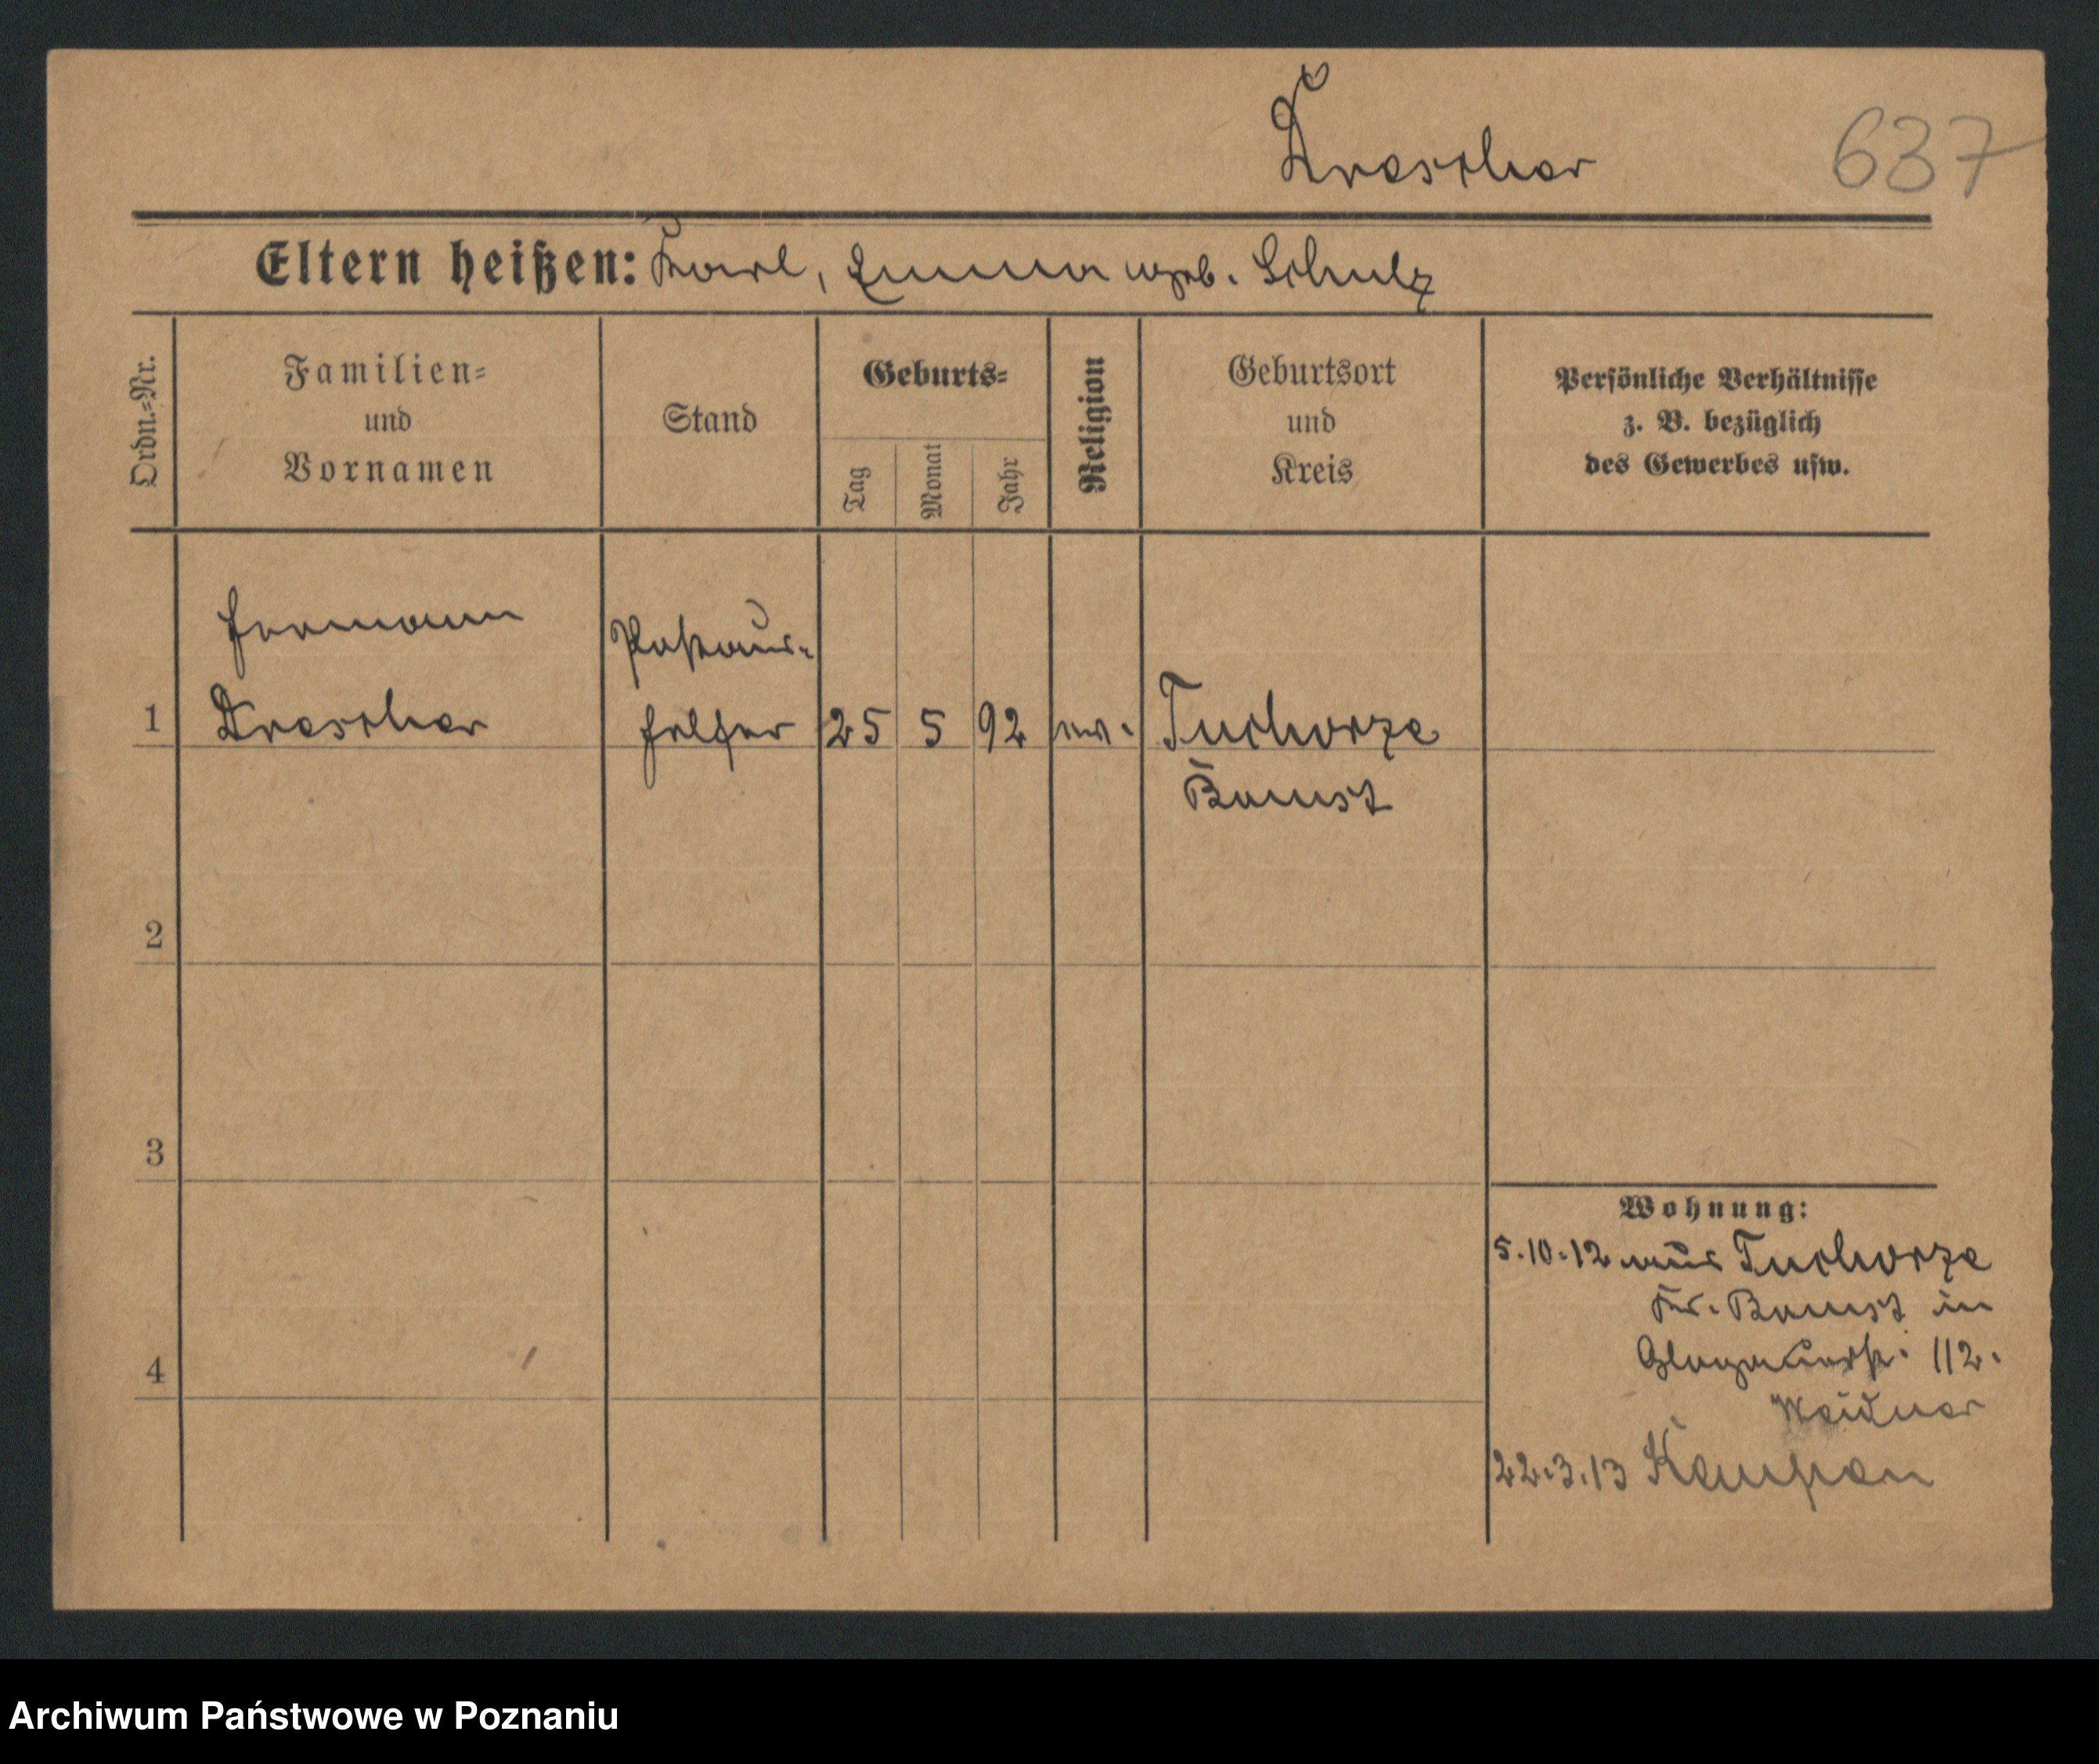 Drescher
637
Eltern heißen: Karl, Emma geb. Schulz
Ordn.-Nr.
Familien-
und
Vornamen
Stand
Geburts-
Tag
Monat
Jahr
Religion
Geburtsort
und
Kreis
Persönliche Verhältnisse
z. B. bezüglich
des Gewerbes usw.
1
Hermann
Drescher
Postaus-
helfer
25
5
92
ev.
Tuchorze
Bomst
2
3
4
Wohnung:
5.10.12 aus Tuchorze
Kr. Bomst in
Glogauerstr. 112.
Weidner
22.3.13 Kempen
Archiwum Państwowe w Poznaniu